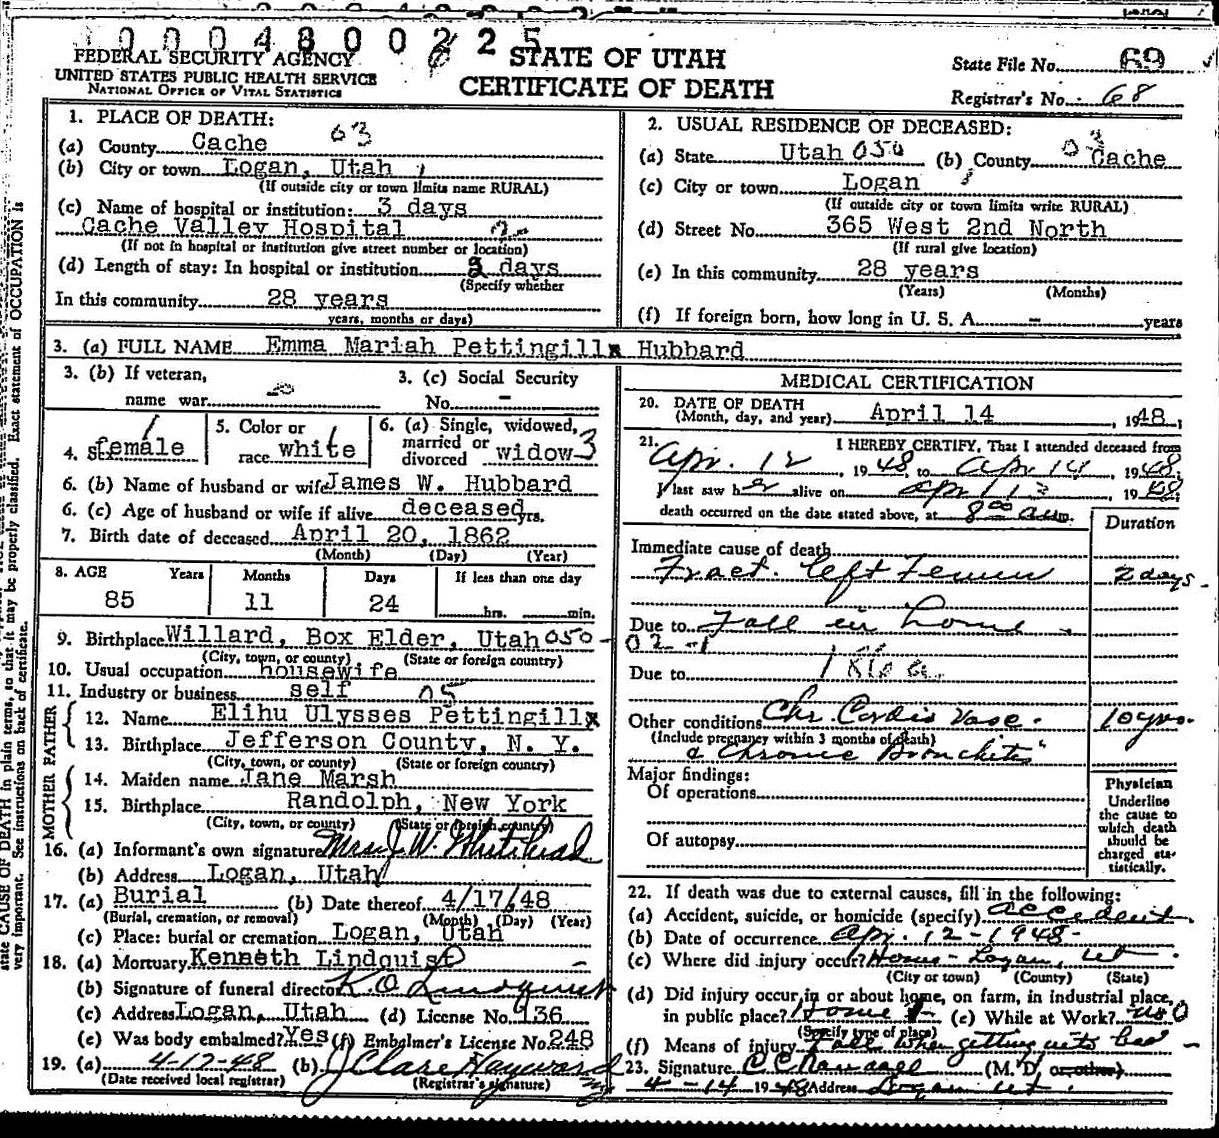 0 0 0 4 8 0 0 2 2 5
FEDERAL SECURITY AGENCY
UNITED STATES PUBLIC HEALTH SERVICE
NATIONAL OFFICE OF VITAL STATISTICS
STATE OF UTAH
CERTIFICATE OF DEATH
State File No. 69
Registrar's No. 68
1. PLACE OF DEATH: 63
(a) County Cache
(b) City or town Logan, Utah
(If outside city or town limits name RURAL)
(c) Name of hospital or institution: 3 days
Cache Valley Hospital
(If not in hospital or institution give street number or location)
(d) Length of stay: In hospital or institution 3 days
(Specify whether
In this community 28 years
years, months or days)
2. USUAL RESIDENCE OF DECEASED:
(a) State Utah 050 (b) County 03 Cache
(c) City or town Logan
(If outside city or town limits write RURAL)
(d) Street No. 365 West 2nd North
(If rural give location)
(e) In this community 28 years
(Years) (Months)
(f) If foreign born, how long in U. S. A. - years
3. (a) FULL NAME Emma Mariah Pettingill Hubbard
3. (b) If veteran,
name war
3. (c) Social Security
No. -
4. Sex female
5. Color or
race white
6. (a) Single, widowed,
married or
divorced widow 3
6. (b) Name of husband or wife James W. Hubbard
6. (c) Age of husband or wife if alive deceased yrs.
7. Birth date of deceased April 20, 1862
(Month) (Day) (Year)
8. AGE Years Months Days If less than one day
85 11 24 hrs. min.
9. Birthplace Willard, Box Elder, Utah 050
(City, town, or county) (State or foreign country)
10. Usual occupation housewife
11. Industry or business self 05
FATHER
12. Name Elihu Ulysses Pettingill
13. Birthplace Jefferson County, N. Y.
(City, town, or county) (State or foreign country)
MOTHER
14. Maiden name Jane Marsh
15. Birthplace Randolph, New York
(City, town, or county) (State or foreign country)
16. (a) Informant's own signature Mrs. J. W. Whitehead
(b) Address Logan, Utah
17. (a) Burial (b) Date thereof 4/17/48
(Burial, cremation, or removal) (Month) (Day) (Year)
(c) Place: burial or cremation Logan, Utah
18. (a) Mortuary Kenneth Lindquist
(b) Signature of funeral director K. O. Lindquist
(c) Address Logan, Utah (d) License No. 136
(e) Was body embalmed? Yes (f) Embalmer's License No. 248
19. (a) 4-17-48 (b) J Clare Hayward
(Date received local registrar) (Registrar's signature)
MEDICAL CERTIFICATION
20. DATE OF DEATH
(Month, day, and year) April 14, 1948;
21. I HEREBY CERTIFY, That I attended deceased from
Apr. 12, 1948 to Apr 14 1948;
I last saw her alive on Apr 13, 1948;
death occurred on the date stated above, at 8:00 a.m.
Duration
Immediate cause of death
Fract. left Femur 2 days
Due to Fall in home
02-1
Due to 186a
Other conditions Chr. Cardio Vasc. 10 yrs.
(Include pregnancy within 3 months of death)
& Chronic Bronchitis
Major findings:
Of operations
Of autopsy
Physician
Underline
the cause to
which death
should be
charged sta-
tistically.
22. If death was due to external causes, fill in the following:
(a) Accident, suicide, or homicide (specify) accident
(b) Date of occurrence Apr. 12-1948
(c) Where did injury occur? Home - Logan, Ut.
(City or town) (County) (State)
(d) Did injury occur in or about home, on farm, in industrial place,
in public place? Home (e) While at Work? no
(Specify type of place)
(f) Means of injury Fall when getting into bed
23. Signature C C Randall (M. D. or other)
4-14 1948 Address Logan Ut.
state CAUSE OF DEATH in plain terms, so that it may be properly classified. Exact statement of OCCUPATION is
very important. See instructions on back of certificate.